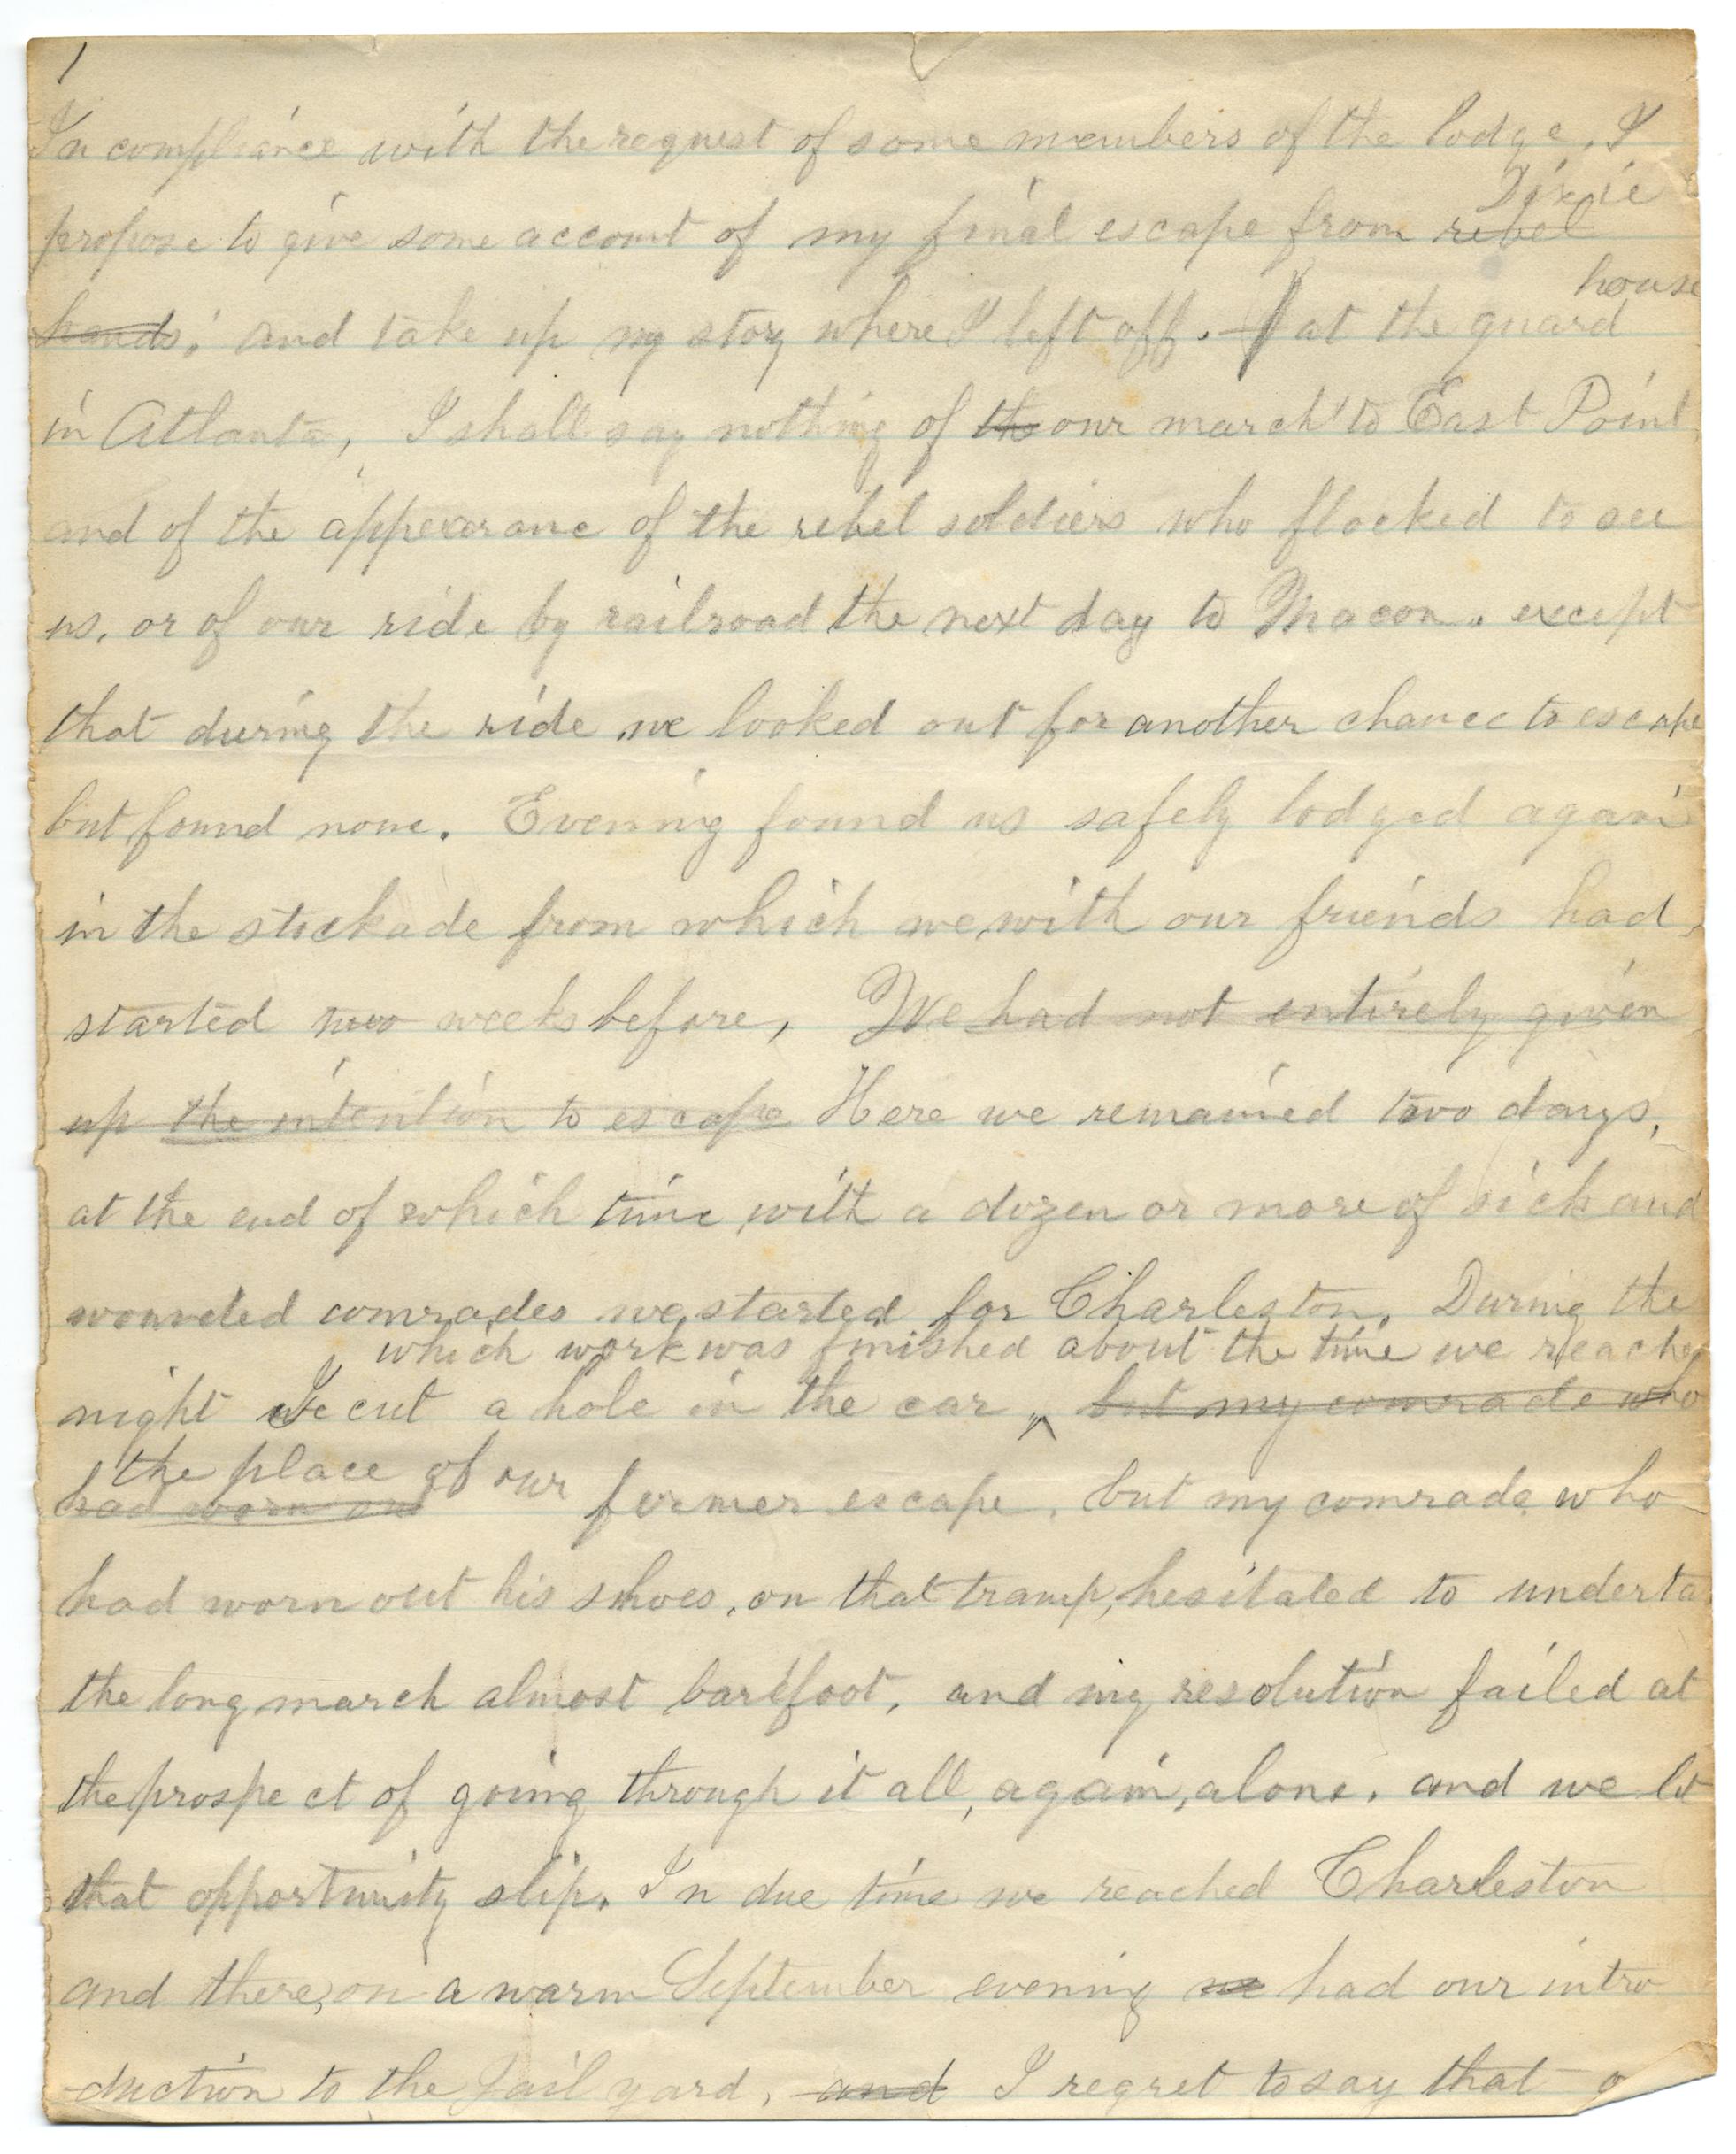 1
In compliance with the request of some members of the lodge, I
Dixie
propose to give some account of my final escape from rebel
house
hands; and take up my story where I left off. at the guard
in Atlanta, I shall say nothing of the our march to East Point
and of the appearanc of the rebel soldiers who flocked to see
us, or of our ride by railroad the next day to Macon. except
that during the ride we looked out for another chance to escape
but found none. Evening found us safely lodged again
in the stockade from which we, with our friends had,
started two weeks before, We had not entirely given
up the intention to escape Here we remained two days,
at the end of which time, with a dozen or more of sick and
wounded comrades we started for Charleston. During the
which work was finished about the time we reache
night We cut a hole in the car ^ but my comrade who
the place of our
had worn out former escape, but my comrade, who
had worn out his shoes, on that tramp, hesitated to underta
the long march almost barefoot, and my resolution failed at
the prospect of going through it all, again, alone. and we let
that opportunity slip. In due time we reached Charleston
and there, on a warm September evening we had our intro
duction to the Jail yard, and I regret to say that a